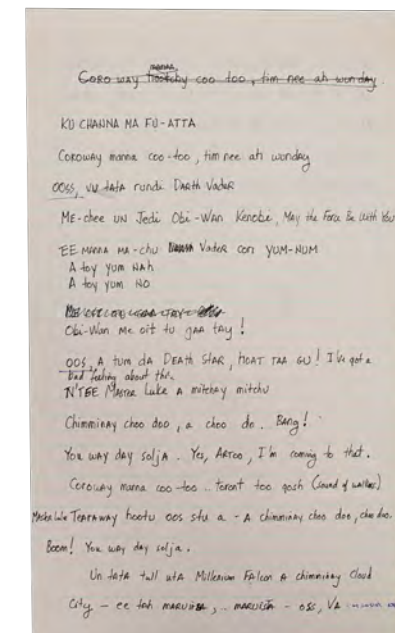 Coro way hootchy coo too, tim nee ah wonday.
manna
KU CHANNA MA FU-ATTA
Coroway manna coo-too, tim nee ah wonday
OOSS, VU tAtA rundi DARth VadeR
ME-chee UN Jedi Obi-Wan Kenobi, May the Force Be With You
EE MANNA MA-chu VadeR con YUM-NUM
A toy yum NAh
A toy yum NO
Obi-Wan Me oit tu gaa tay!
OOS, A tum da DEAth StAR, HOAT TAA GU! I've got a
bad feeling about this.
N'TEE MAsteR Luke A mitchay mitchu
Chimminay choo doo, a choo do. Bang!
You way day solja. Yes, ARtoo, I'm coming to that.
Coroway manna coo-too.. toront too gosh (sound of walker)
MasteR Luke TeARAWAY hootu oos stu a - A chimminay choo doo, choo doo.
Boom! You way day solja.
Un tAtA twll utA Millenium FAlcon A chimminay Cloud
City - ee toh , .. - oss, VA